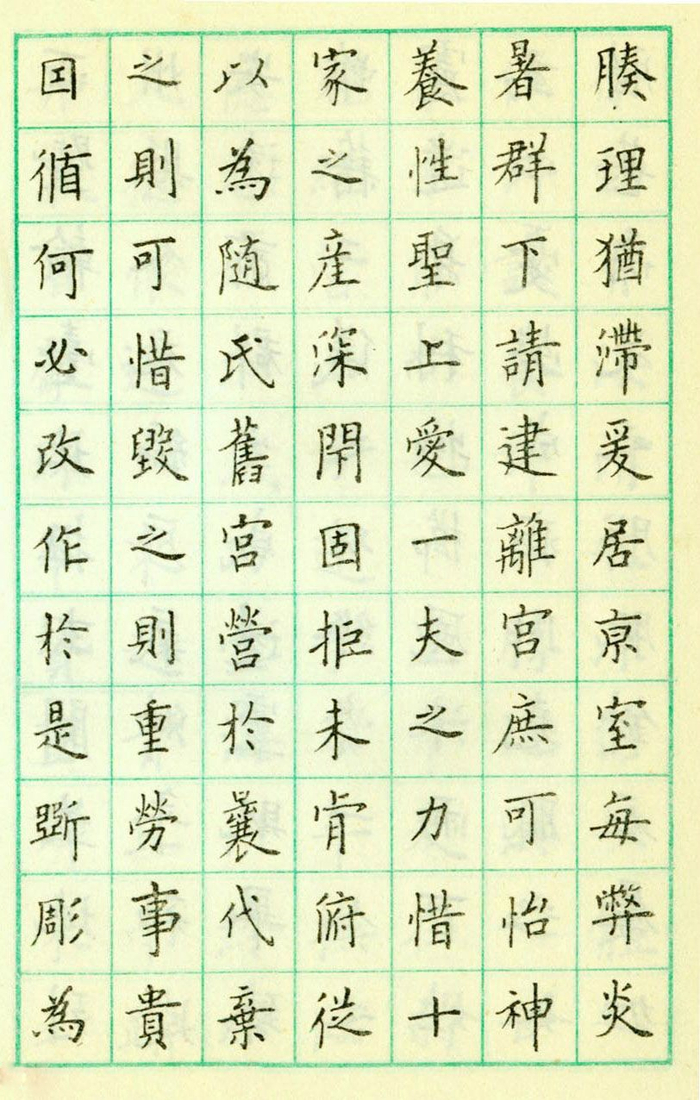 腠理猶滯爰居京室每弊炎
暑群下請建離宮庶可怡神
養性聖上愛一夫之力惜十
家之產深閇固拒未肯俯從
以為隨氏舊宮營於曩代棄
之則可惜毀之則重勞事貴
因循何必改作於是斵彫為